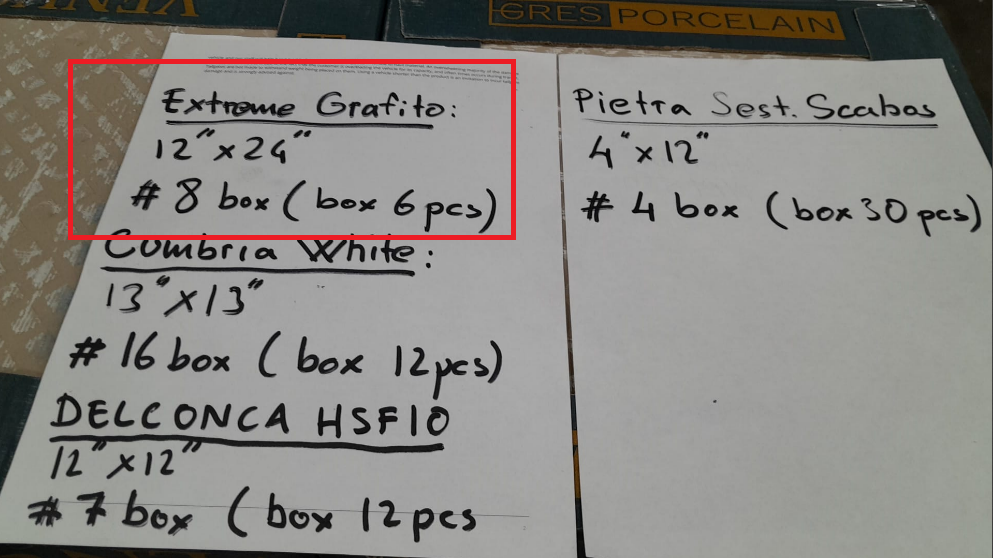 GRES PORCELAIN
Extreme Grafito:
12" x 24"
# 8 box ( box 6 pcs)
Cumbria White:
13" x 13"
# 16 box ( box 12 pcs)
DELCONCA HSF10
12" x 12"
# 7 box ( box 12 pcs
Pietra Sest. Scabas
4" x 12"
# 4 box (box 30 pcs)